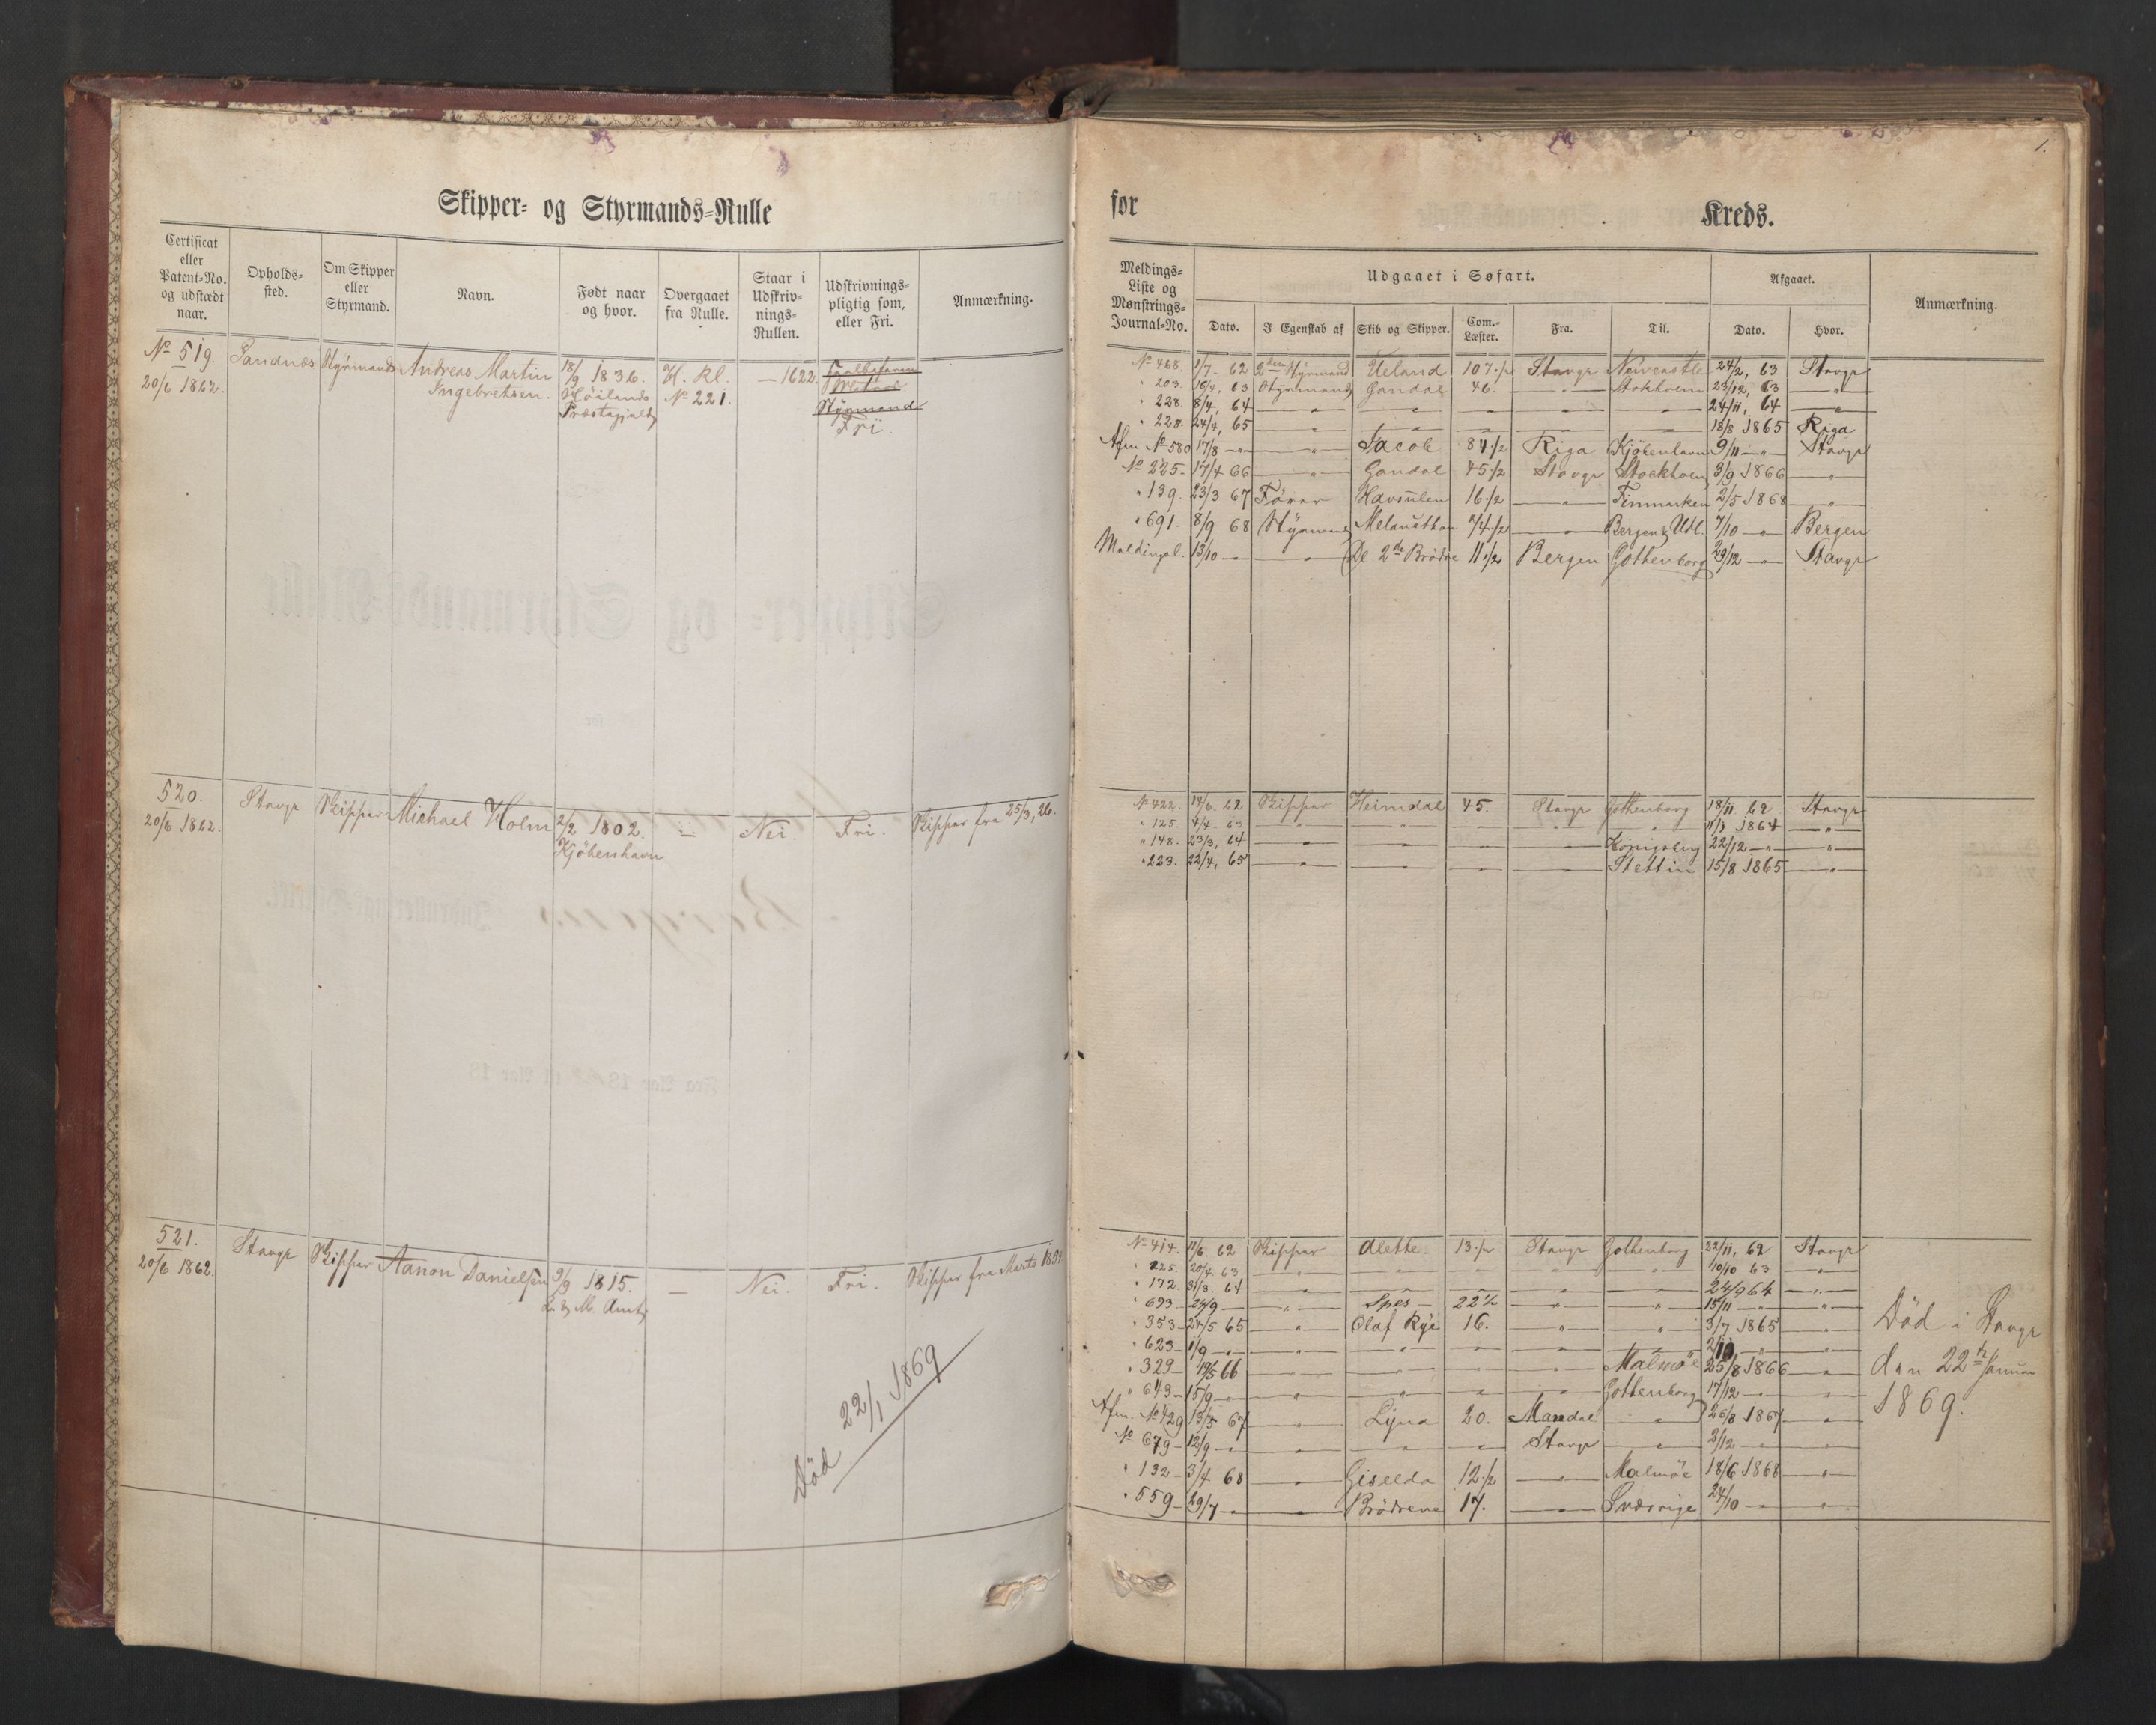 Skipper- og Styrmands-Rulle
Certificat eller Patent-No. og udstædt naar.
Opholds-sted.
Om Skipper eller Styrmand.
Navn.
Født naar og hvor.
Overgaaet fra Rulle.
Staar i Udskriv-nings-Rullen.
Udskrivnings-pligtig som, eller Fri.
Anmærkning.
No 519. Sandnæs Styrmand Andreas Martin 18/9 1836. H. Kl. — 1622.
20/6 1862. Ingebretsen. Höilands No 221. Styrmand
Præstegjæld Fri.
520. Stavgr Skipper Michael Holm 2/2 1802. — Nei. Fri. Skipper fra 25/3, 26.
20/6 1862. Kjöbenhavn
521. Stavgr Skipper Aanon Danielsen 9/9 1815. — Nei. Fri. Skipper fra Marts
20/6 1862. L. & M. Amt
Död 22/1 1869
1.
for Kreds.
Meldings-Liste og Mønstrings-Journal-No.
Udgaaet i Søfart.
Dato. I Egenskab af Skib og Skipper. Com.-Læster. Fra. Til.
Afgaaet.
Dato. Hvor.
Anmærkning.
No 468. 1/7 - 62 2den Styrmand Ueland 107 1/2 Stavgr Newcastle 24/2, 63 Stavgr
" 203. 18/4, 63 Styrmand Gandal 46. — " — Stokholm 23/12, 63 — " —
" 228. 8/4, 64 — " — — " — — " — — " — — " — 24/11, 64 — " —
" 228. 24/4, 65 — " — — " — — " — — " — — " — 18/8 1865 Riga
Afm No 580 17/8 — " — — " — Jacob 84 1/2 Riga Kjöbenhavn 9/11 — " — Stavgr
No 225 - 17/4 66 — " — Gandal 45 1/2 Stavgr Stockholm 3/9 1866 — " —
" 139. 23/3 67 Förer Havsulen 16 1/2 — " — Finmarken 2/5 1868 — " —
" 691. 8/9 68 Styrmand Melancthon — " — Bergen & Udl. 7/10 — " — Bergen
Meldingsl. 13/10 — " — — " — De 2de Brödre 11 1/2 Bergen Gothenborg 29/12 — Stavgr
No 422. 14/6. 62 Skipper Heimdal 45. Stavgr Gothenborg 18/11 62 Stavgr
" 125. 4/4 - 63 — " — — " — — " — — " — — " — 1864 — " —
" 148. 23/3, 64 — " — — " — — " — — " — Königsberg 22/12 — " — — " —
" 229. 22/4, 65 — " — — " — — " — — " — Stettin 15/8 1865 — " —
No 414. 11/6. 62 Skipper Alette. 13 1/2 Stavgr Gothenborg 22/11, 62 Stavgr
" 225. 20/4 63 — " — — " — — " — — " — — " — 10/10 63 — " —
" 172. 31/3. 64 — " — — " — — " — — " — — " — 24/9 64 — " —
" 693 - 24/9 — — " — Spes — 22 1/2 — " — — " — 15/11 — " — — " —
" 353 - 24/5 65 — " — Olaf Rye 16. — " — — " — 3/7 1865 — " —
" 623 - 1/9 — " — — " — — " — — " — — " — — " — 2/10 — " — — " —
" 329 - 19/5 66 — " — — " — — " — — " — Malmöe 25/8 1866 — " —
" 643 - 15/9 — " — — " — — " — — " — — " — Gothenborg 17/12 — " — — " —
Afm. No 429 13/5 67 — " — Lyna 20. Mandal — " — 26/8 1867 — " —
No 679 - 12/9 — " — — " — — " — — " — Stavgr — " — 3/12 — " — — " —
" 132 - 3/4 68 — " — Giselda 12 1/2 — " — Malmöe 18/6 1868 — " —
" 559 - 29/7 — " — — " — Brödrene 17. — " — Sværrige 24/10 — " — — " —
Död i Stavgr
den 22de Januar
1869.